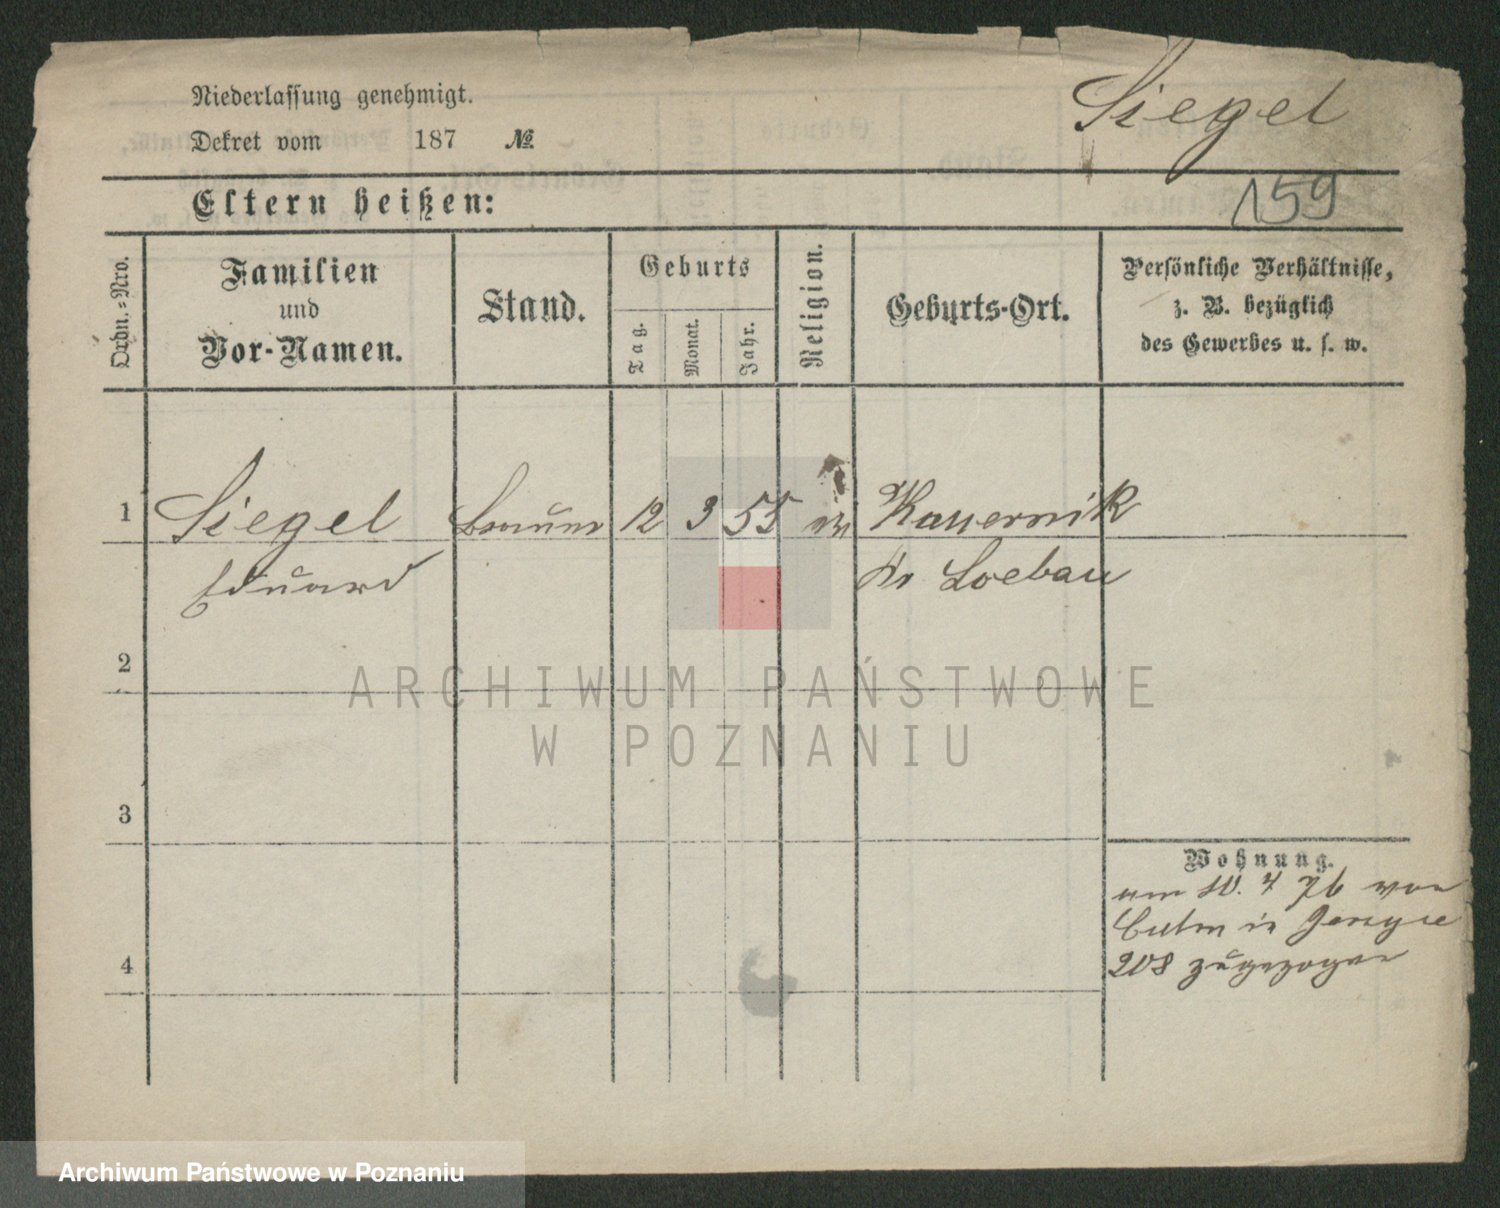 Niederlassung genehmigt.
Siegel
Dekret vom 187 №
159
Eltern heißen:
Ordn.-Nro.
Familien
und
Vor-Namen.
Stand.
Geburts
Tag.
Monat.
Jahr.
Religion.
Geburts-Ort.
Persönliche Verhältnisse,
z. B. bezüglich
des Gewerbes u. s. w.
1 Siegel Brauer 12 3 55 Kauernik
Eduard Kr Loebau
2
3
4
Wohnung.
am 10. 4 76 von
Culm in
208 zugezogen
ARCHIWUM PAŃSTWOWE
W POZNANIU
Archiwum Państwowe w Poznaniu